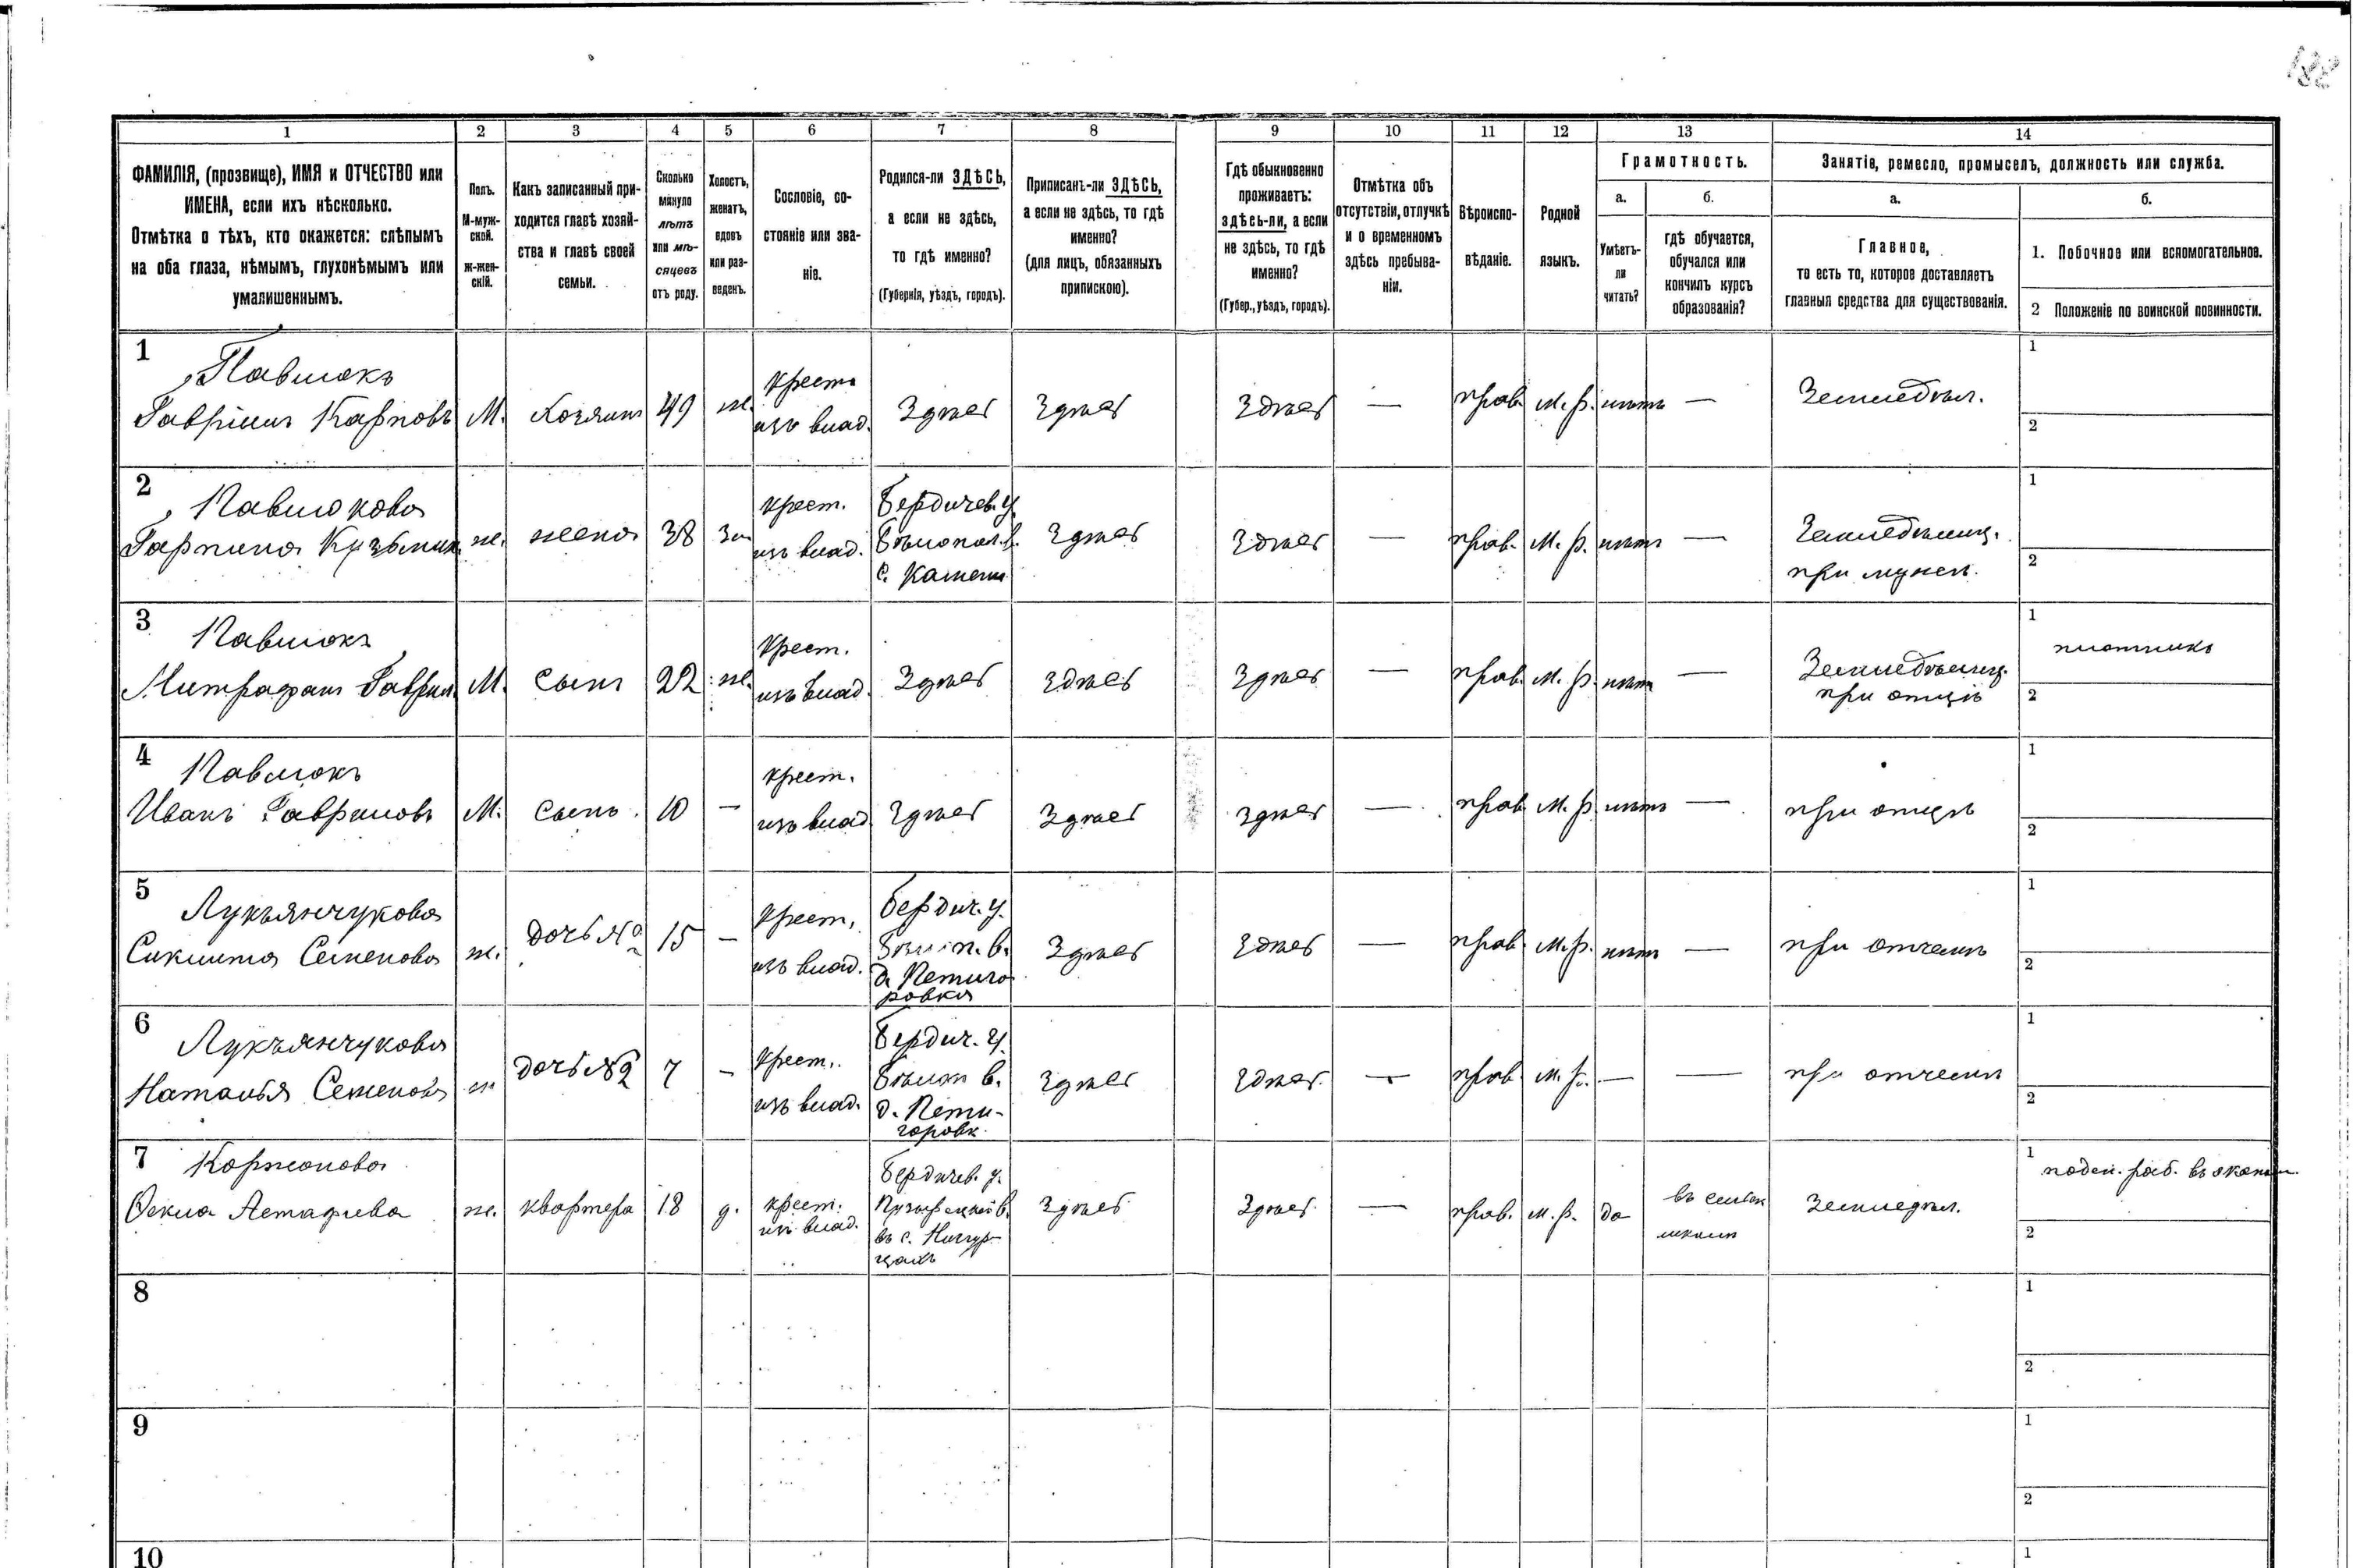 188
1 2 3 4 5 6 7 8 9 10 11 12 13 14
ФАМИЛІЯ, (прозвище), ИМЯ и ОТЧЕСТВО или
ИМЕНА, если ихъ нѣсколько.
Отмѣтка о тѣхъ, кто окажется: слѣпымъ
на оба глаза, нѣмымъ, глухонѣмымъ или
умалишеннымъ.
Полъ.
М-муж-
ской.
Ж-жен-
скій.
Какъ записанный при-
ходится главѣ хозяй-
ства и главѣ своей
семьи.
Сколько
минуло
лѣтъ
или мѣ-
сяцевъ
отъ роду.
Холостъ,
женатъ,
вдовъ
или раз-
веденъ.
Сословіе, со-
стояніе или зва-
ніе.
Родился-ли ЗДѢСЬ,
а если не здѣсь,
то гдѣ именно?
(Губернія, уѣздъ, городъ).
Приписанъ-ли ЗДѢСЬ,
а если не здѣсь, то гдѣ
именно?
(для лицъ, обязанныхъ
припискою).
Гдѣ обыкновенно
проживаетъ:
здѣсь-ли, а если
не здѣсь, то гдѣ
именно?
(Губер., уѣздъ, городъ).
Отмѣтка объ
отсутствіи, отлучкѣ
и о временномъ
здѣсь пребыва-
ніи.
Вѣроиспо-
вѣданіе.
Родной
языкъ.
Грамотность.
а.
Умѣетъ-
ли
читать?
б.
гдѣ обучается,
обучался или
кончилъ курсъ
образованія?
Занятіе, ремесло, промыселъ, должность или служба.
а.
Главное,
то есть то, которое доставляетъ
главныя средства для существованія.
б.
1. Побочное или вспомогательное.
2 Положеніе по воинской повинности.
1
Павлюкъ
Гаврiилъ Карповъ
М.
Хозяинъ
49
ж.
Крест.
изъ влад.
Здѣсь
Здѣсь
Здѣсь
—
прав.
М. р.
нѣтъ
—
Земледѣл.
1
2
2
Павлюкова
Гарпина Кузьмин.
ж.
жена
38
За
крест.
изъ влад.
Бердичев. у.
Бѣлопол. в.
Здѣсь
Здѣсь
—
прав.
М. р.
нѣтъ
—
Земледѣлиц.
при мужѣ.
1
2
3
Павлюкъ
Митрафанъ Гаврил.
М.
Сынъ
22
ж.
Крест.
изъ влад.
Здѣсь
Здѣсь
Здѣсь
—
прав.
М. р.
нѣтъ
—
при отцѣ
1
плотникъ
2
4
Павлюкъ
Иванъ Гавриловъ
М.
Сынъ.
10
—
крест.
изъ влад.
Здѣсь
Здѣсь
Здѣсь
—
прав.
М. р.
нѣтъ
—
при отцѣ
1
2
5
Лукъянчукова
Семенова
ж.
дочь
15
—
Крест.
изъ влад.
Бердич. у.
д. Петиго
ровка
Здѣсь
Здѣсь
—
прав.
М. р.
нѣтъ
—
при отчимѣ
1
2
6
Лукъянчукова
Наталья Семенова
ж
дочь №2
7
—
Крест.
изъ влад.
Бердич. у.
д. Пети-
горовк.
Здѣсь
Здѣсь
—
прав.
М. р.
—
—
при отчимѣ
1
2
7
Коржонова
Фекла Астафiева
ж.
квартера
18
д.
крест.
изъ влад.
Бердичев. у.
Здѣсь
Здѣсь
—
прав.
М. р.
да
школѣ
Земледѣл.
1
поден. раб. въ эконом.
2
8
1
2
9
1
2
10
1